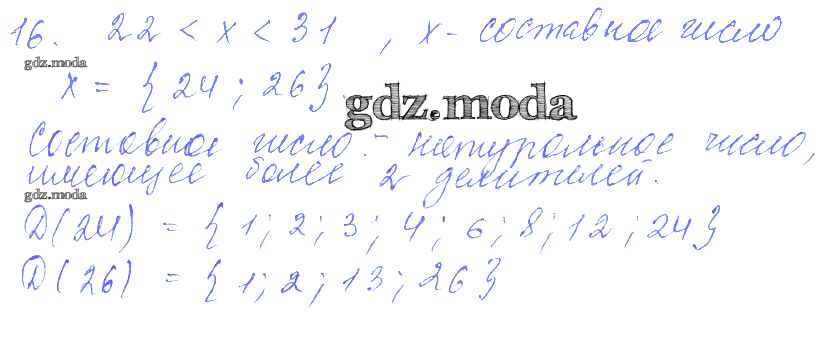 16. 22 < x < 31 , x - составное число
gdz.moda
x = {24 ; 26}.
gdz.moda
Составное число - натуральное число,
имеющее более 2 делителей.
gdz.moda
D(24) = {1; 2; 3; 4; 6; 8; 12; 24}
D(26) = {1; 2; 13; 26}